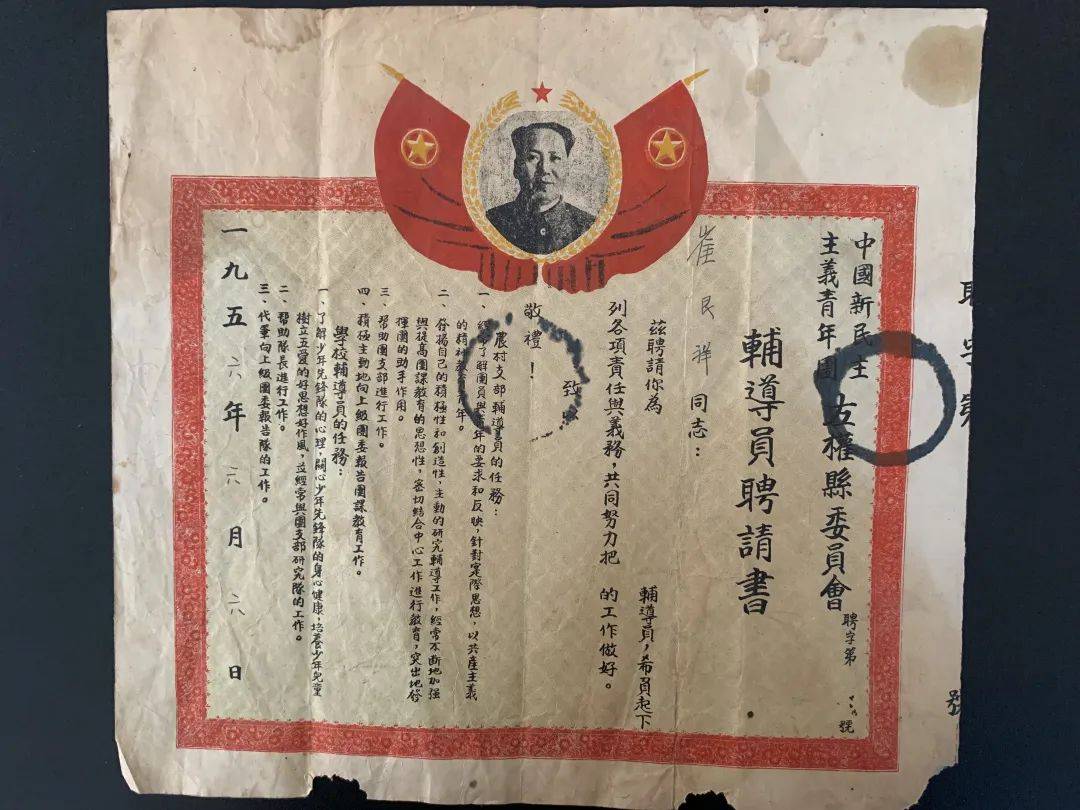 聘字第
號
中國新民主
主義青年團左權縣委員會
聘字第
號
輔導員聘請書
崔民祥同志：
茲聘請你為
輔導員，希負起下
列各項責任與義務，共同努力把
的工作做好。
致以
敬禮！
農村支部輔導員的任務：
一、經常了解團員與青年的要求和反映，針對實際思想，以共產主義
的精神教育青年。
二、發揚自己的積極性和創造性，主動的研究輔導工作，經常不斷地加強
與提高團課教育的思想性，密切結合中心工作進行教育，突出地發
揮團的助手作用。
三、幫助團支部進行工作。
四、積極主動地向上級團委報告團課教育工作。
學校輔導員的任務：
一、了解少年先鋒隊的心理，關心少年先鋒隊的身心健康，培養少年兒童
樹立五愛的好思想好作風，並經常與團支部研究隊的工作。
二、幫助隊長進行工作。
三、代軍向上級團委報告隊的工作。
一九五六年六月六日